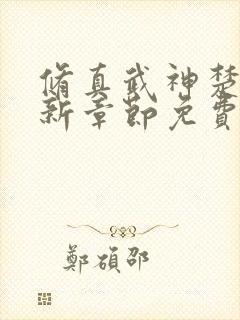 脩真武神楚
新章節免費
鄭碩邵